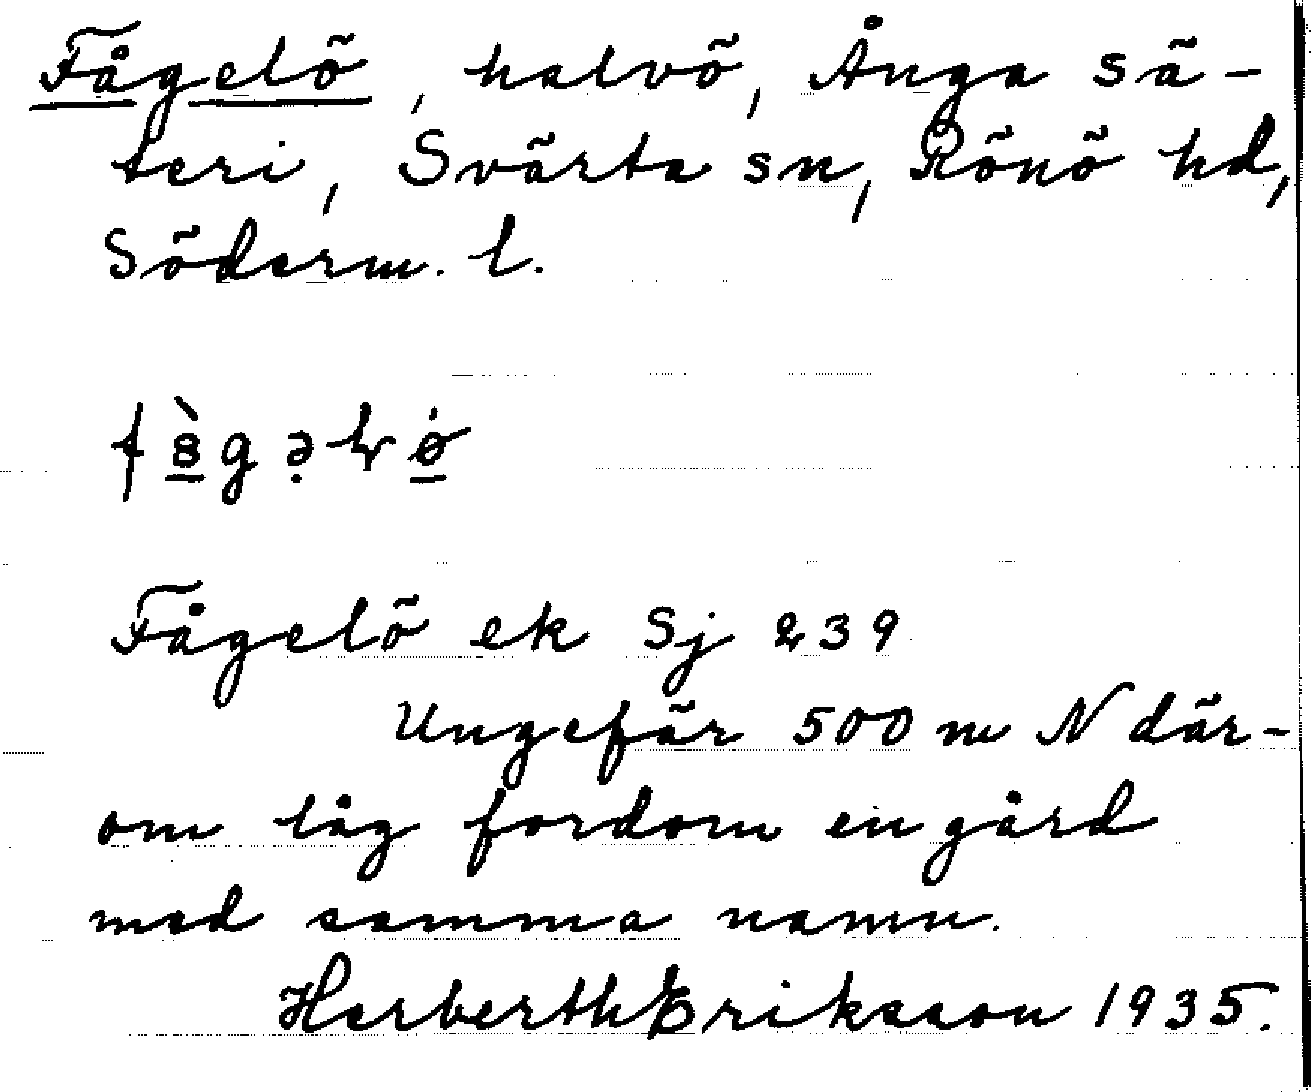 Fågelö, halvö, Ånga sä-
teri, Svärta sn, Rönö hd,
Söderm. l.
Fågelö ek Sj 239
Ungefär 500 m N där-
om låg fordom en gård
med samma namn.
Herberth Eriksson 1935.